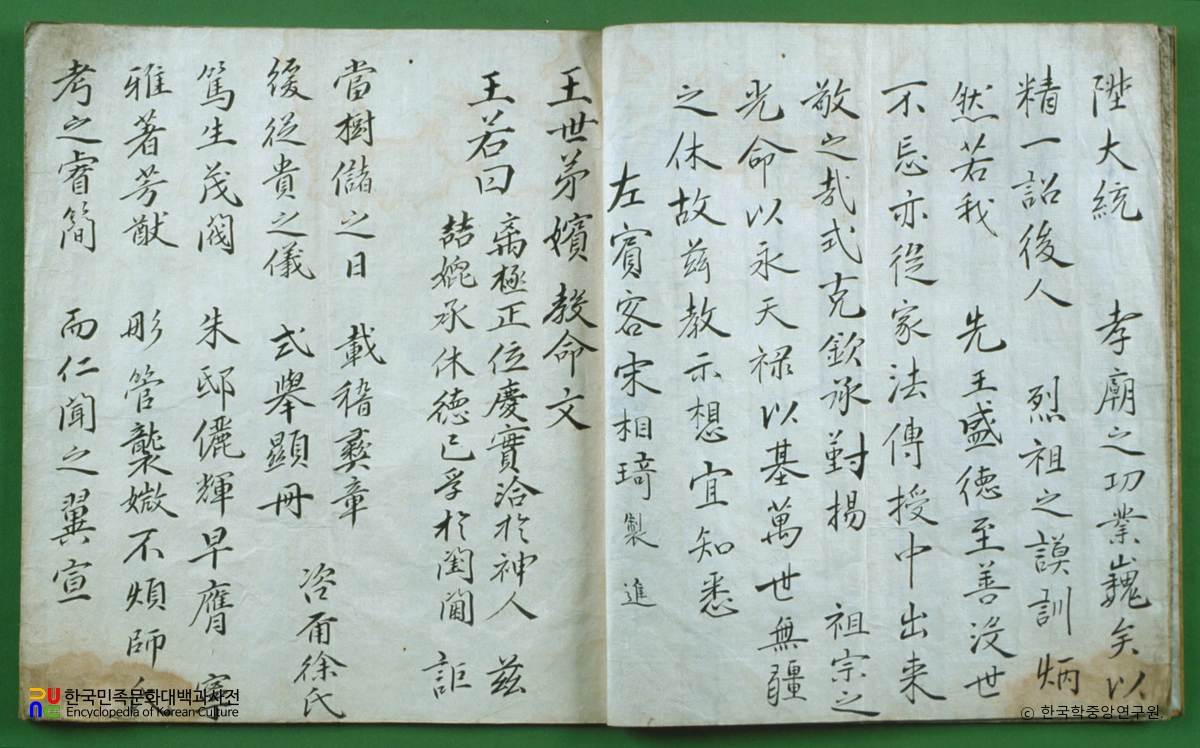 陞大統 孝廟之功業巍矣以
精一詔後人 烈祖之謨訓炳
然若我 先王盛德至善沒世
不忘亦從家法傳授中出來
敬之哉式克欽承對揚 祖宗之
光命以永天祿以基萬世無疆
之休故玆教示想宜知悉
左賓客宋相琦製進
王世弟嬪教命文
王若曰 离極正位慶實洽於神人 玆
喆媲承休德已孚於閨閫 詎
當樹儲之日 載稽彜章 咨爾徐氏
緩從貴之儀 式擧顯冊
篤生茂閥 朱邸儷輝早膺 寧
雅著芳猷 彤管襲媺不煩師
考之睿簡 而仁聞之翼宣
한국민족문화대백과사전
Encyclopedia of Korean Culture
© 한국학중앙연구원